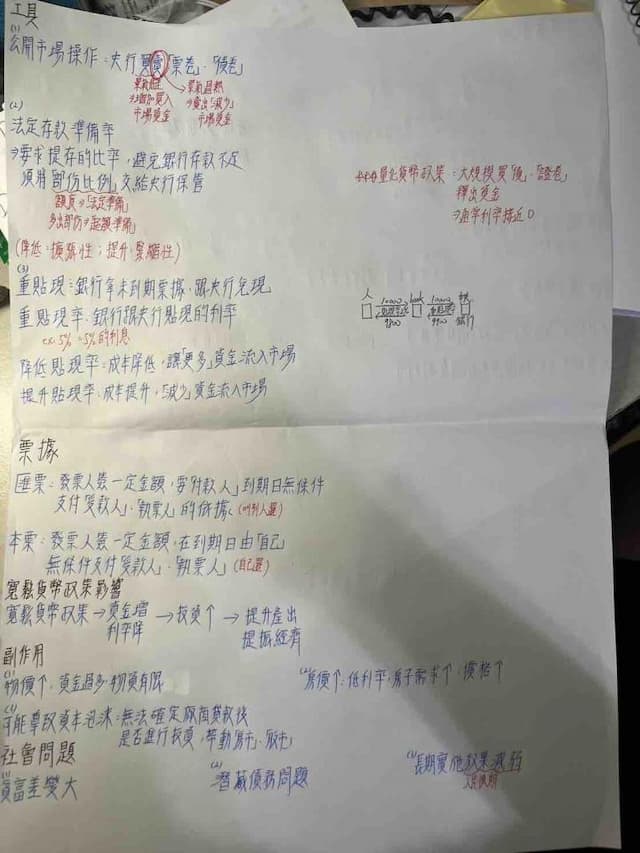 工具
(1)
公開市場操作：央行買賣「票卷」、「債卷」
景氣差 → 景氣過熱
⇒增加買入 ⇒賣出「減少」
市場資金 市場資金
(2)
法定存款準備率
⇒要求提存的比率，避免銀行存款不足
須將「部份比例」交給央行保管
額頁⇒「法定準備」
多出部份⇒「超額準備」
(降低：擴張性；提升：緊縮性)
量化貨幣政策：大規模買「債」、「證卷」
釋出資金
⇒通常利率接近0
(3)
重貼現：銀行拿未到期票據，跟央行兌現
重貼現率：銀行跟央行貼現的利率
ex. 5% ⇒ 5%的利息
降低貼現率：成本降低，讓「更多」資金流入市場
提升貼現率：成本提升，「減少」資金流入市場
人 10000 bank 10000 央
9800 9900 銀行
票據
匯票：發票人簽一定金額，要「付款人」到期日無條件
支付「受款人」、「執票人」的依據。(叫別人還)
本票：發票人簽一定金額，在到期日由「自己」
無條件支付「受款人」、「執票人」(自己還)
寬鬆貨幣政策影響
寬鬆貨幣政策 → 資金增 → 投資↑ → 提升產出
利率降 提振經濟
副作用
(1)物價↑：資金過多，物資有限
(2)房價↑：低利率，房子需求↑，價格↑
可能導致資本泡沫：無法確定廠商貸款後
是否進行投資，帶動房市、股市
社會問題
(1)貧富差變大
(2)潛藏債務問題
(3)長期實施效果減弱